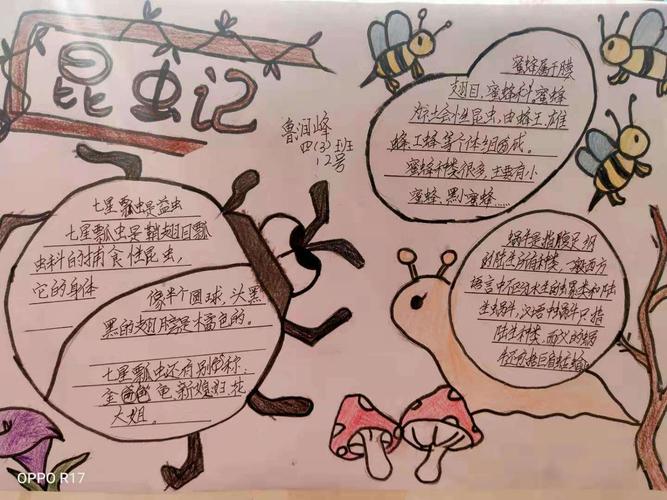 昆虫记
鲁润峰
四(3)班
12号
蜜蜂属于膜
翅目、蜜蜂科蜜蜂
为社会性昆虫,由蜂王、雄
蜂、工蜂等个体组成。
蜜蜂种类很多,主要有小
蜜蜂、黑小蜜蜂……
七星瓢虫是益虫
七星瓢虫是鞘翅目瓢
虫科的捕食性昆虫,
它的身体
像半个圆球,头黑
黑的翅膀是橘色的。
七星瓢虫还有别称.
金龟 新媳妇 花
大姐.
蜗牛是指腹足纲
的陆生所有种类,一般西方
语言中不区分水生的螺类和陆
生蜗牛,汉语中蜗牛只指
陆生种类,而广义的蜗
牛还包括巨
OPPO R17